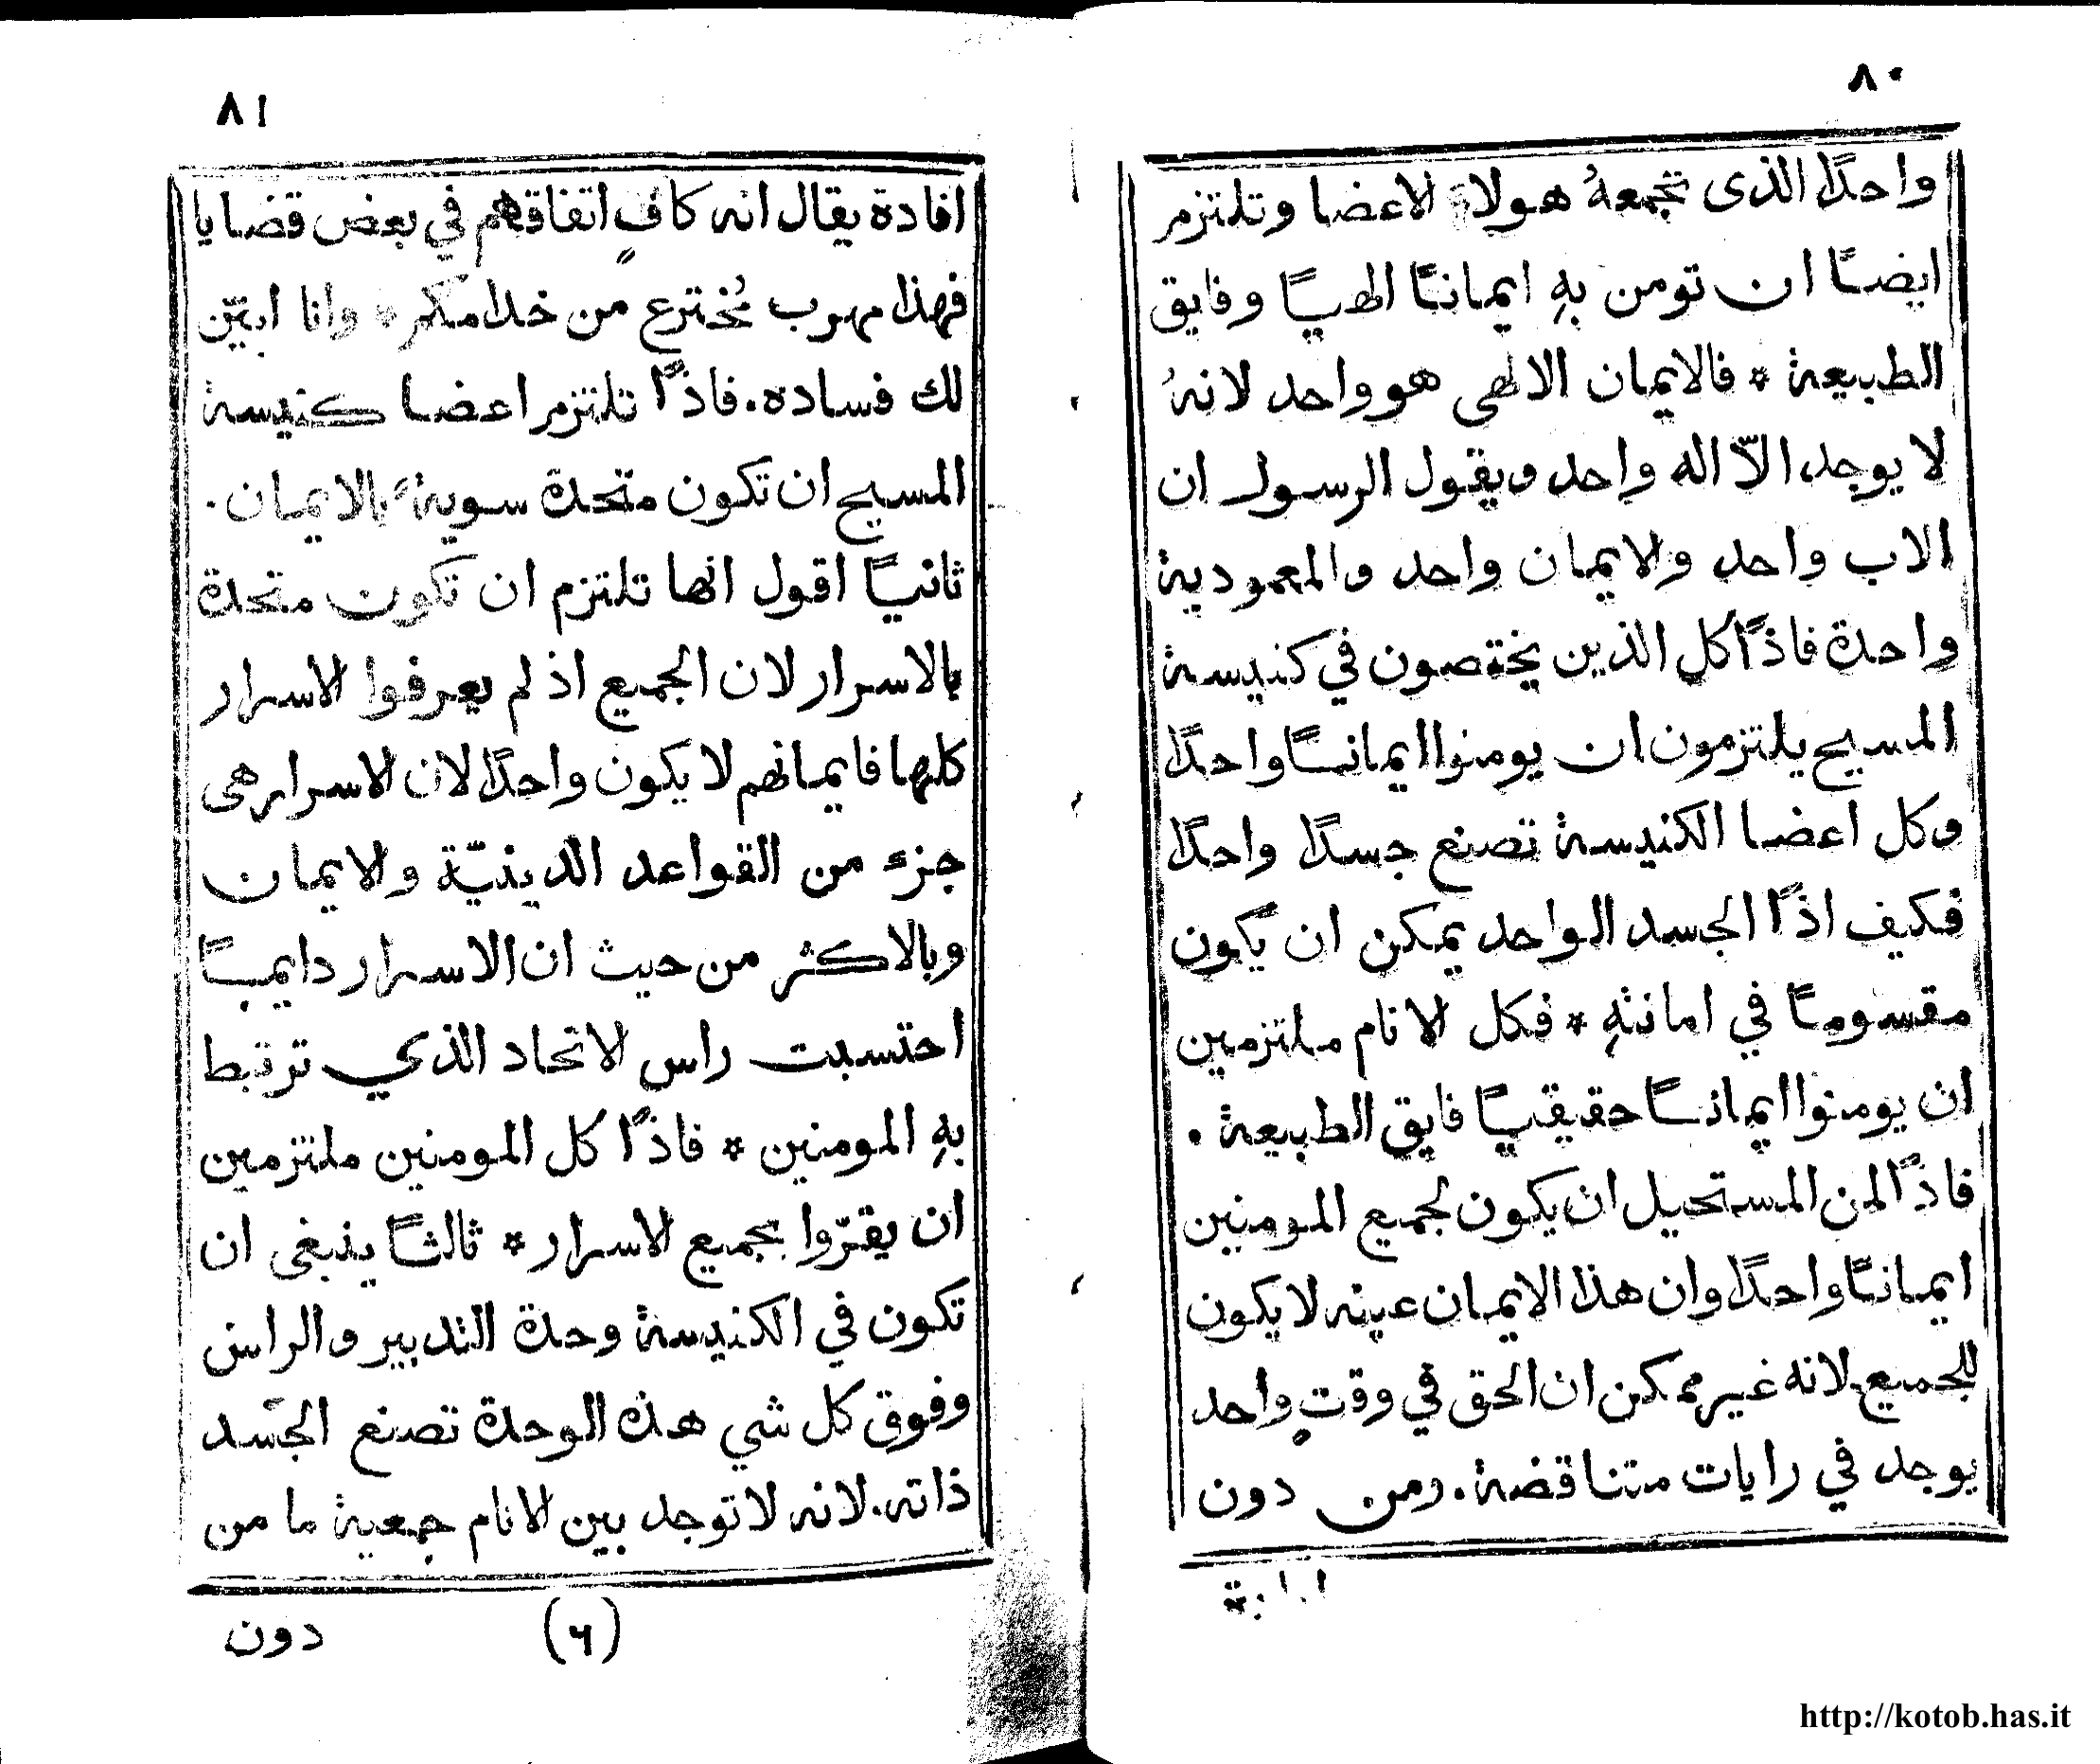 ٨٠
واحدًا الذى تجمعهُ هولاء الاعضا وتلتزم
ايضـًا ان تومن بهِ ايمانـًا الهيـًا وفايق
الطبيعة * فالايمان الالهى هو واحد لانهُ
لا يوجد الّا اله واحد ويقول الرسول ان
الاب واحد والايمان واحد والمعمودية
واحدة فاذًا كل الذين يختصون في كنيسة
المسيح يلتزمون ان يومنوا ايمانـًا واحدًا
وكل اعضا الكنيسة تصنع جسدًا واحدًا
فكيف اذًا الجسد الواحد يمكن ان يكون
مقسومـًا في امانتهِ * فكل الانام ملتزمين
ان يومنوا ايمانـًا حقيقيـًا فايق الطبيعة .
فاذًا لمن المستحيل ان يكون لجميع المومنين
ايمانـًا واحدًا وان هذا الايمان عينه لا يكون
للجميع لانه غير ممكن ان الحق في وقتٍ واحد
يوجد في رايات متناقضة . ومن دون
٨١
افادة يقال انه كافٍ اتفاقهم في بعض قضايا
فهذا مهرب مُخترع من خدامكم * وانا ابيّن
لك فساده . فاذًا تلتزم اعضا كنيسة
المسيح ان تكون متحدة سويةً بالايمان .
ثانيـًا اقول انها تلتزم ان تكون متحدة
بالاسرار لان الجميع اذ لم يعرفوا الاسرار
كلها فايمانهم لا يكون واحدًا لان الاسرار هى
جزء من القواعد الدينيّة والايمان
وبالاكثر من حيث ان الاسرار دايمـًا
احتسبت راس الاتحاد الذي ترتبط
بهِ المومنين * فاذًا كل المومنين ملتزمين
ان يقرّوا بجميع الاسرار * ثالثـًا ينبغى ان
تكون في الكنيسة وحدة التدبير والراس
وفوق كل شي هذه الوحدة تصنع الجسد
ذاته . لانه لا توجد بين الانام جمعية ما من
(٦) دون
http://kotob.has.it